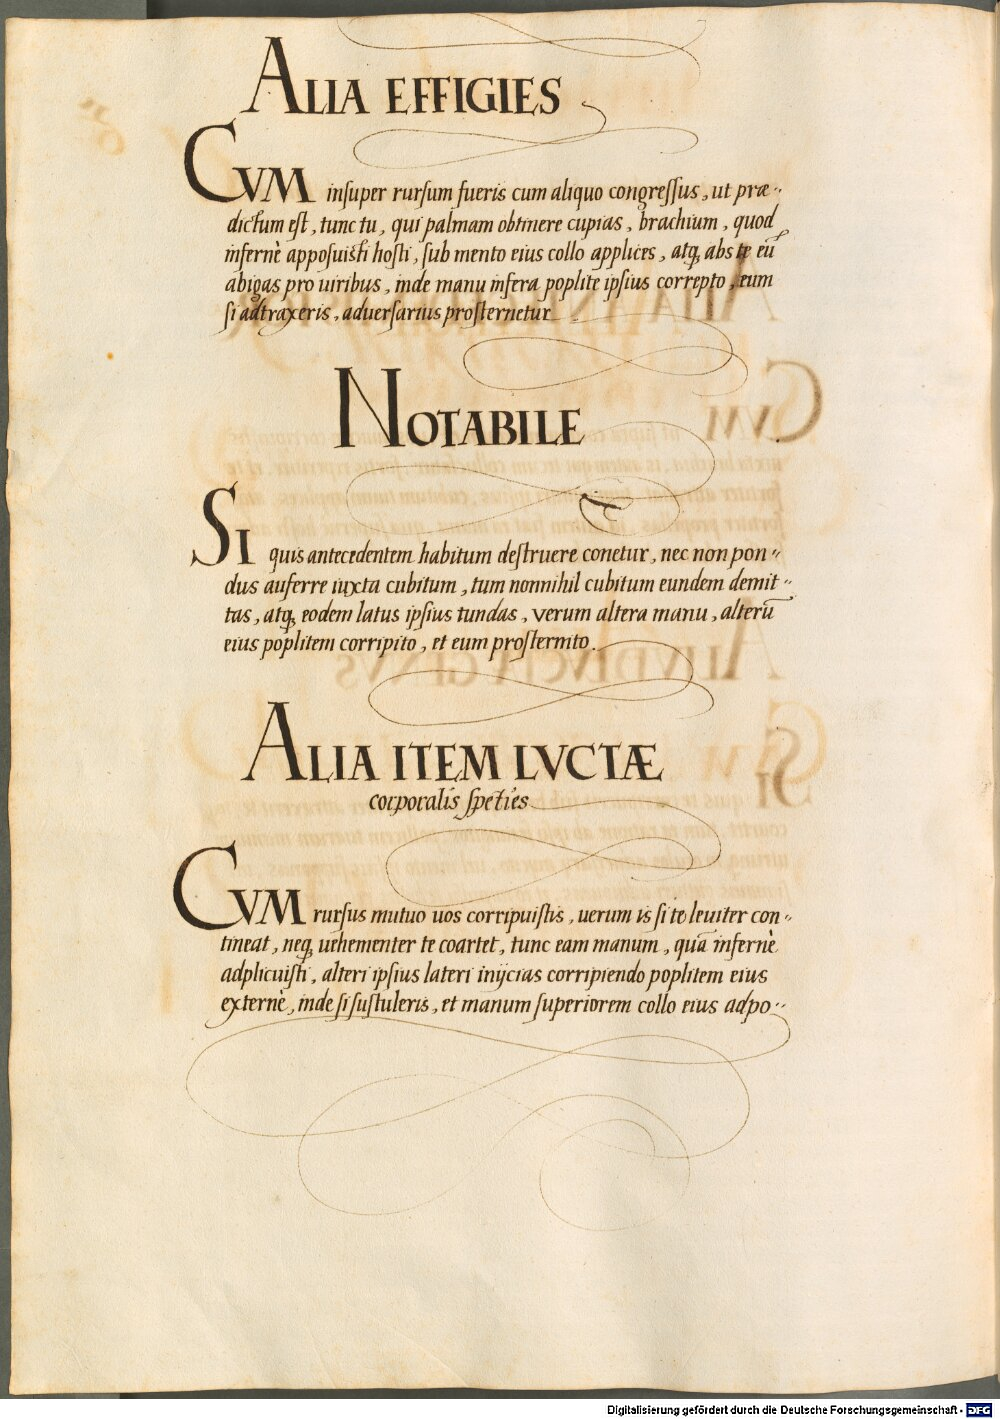 ALIA EFFIGIES
CVM inſuper rurſum fueris cum aliquo congreſſus, ut præ-
dictum eſt, tunc tu, qui palmam obtinere cupias, brachium, quod
infernè appoſuiſti hoſti, ſub mento eius collo applices, atq, abs te eū
abigas pro uiribus, inde manu infera poplite ipſius correpto, eum
ſi adtraxeris, aduerſarius proſternetur
NOTABILE
SI quis antecedentem habitum deſtruere conetur, nec non pon-
dus auferre iuxta cubitum, tum nonnihil cubitum eundem demit-
tas, atq, eodem latus ipſius tundas, verum altera manu, alterū
eius poplitem corripito, et eum proſternito.
ALIA ITEM LVCTÆ
corporalis ſpeties
CVM rurſus mutuo uos corripuiſtis, uerum is ſi te leuiter con-
tineat, neq, uehementer te coartet, tunc eam manum, quā infernè
adplicuiſti, alteri ipſius lateri inijcias corripiendo poplitem eius
externè, inde ſi ſuſtuleris, et manum ſuperiorem collo eius adpo-
Digitalisierung gefördert durch die Deutsche Forschungsgemeinschaft - DFG